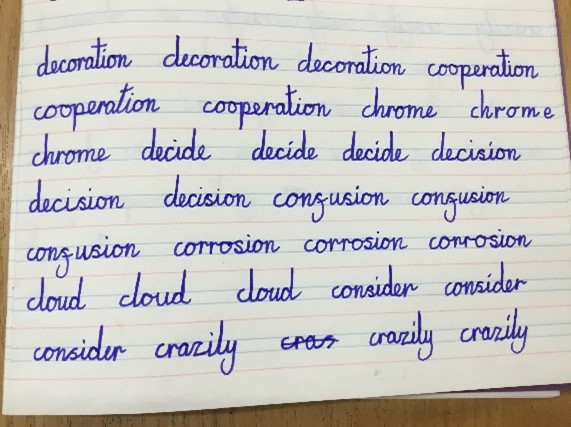 decoration decoration decoration cooperation
cooperation cooperation chrome chrome
chrome decide decide decide decision
decision decision confusion confusion
confusion corrosion corrosion corrosion
cloud cloud cloud consider consider
consider crazily crazily crazily